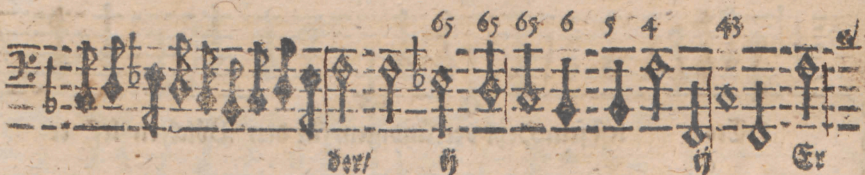 65 65 65 6 5 4 43
der/ ij ij Er